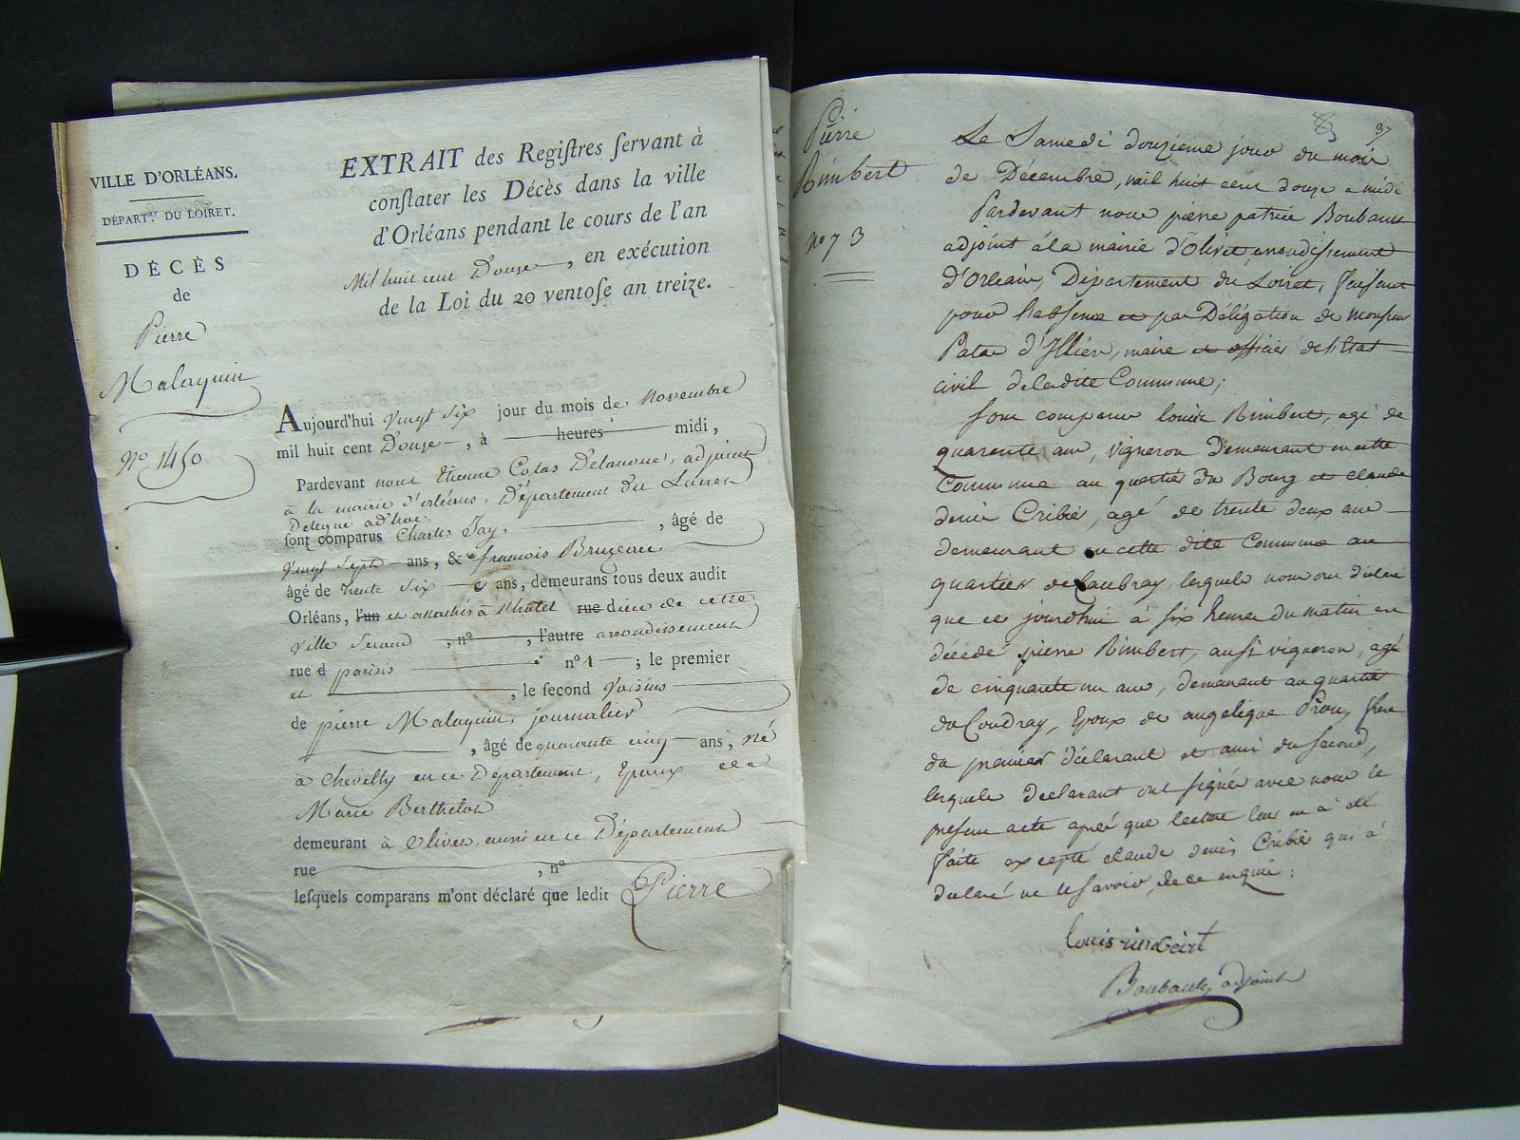 VILLE D'ORLÉANS.
DÉPART.T DU LOIRET.
DÉCÈS
de
Pierre
Malaquin
No. 1450
EXTRAIT des Regiſtres ſervant à
conſtater les Décès dans la ville
d'Orléans pendant le cours de l'an
Mil huit cent Douze, en exécution
de la Loi du 20 ventoſe an treize.
Aujourd'hui vingt six jour du mois de novembre
mil huit cent Douze, à heures midi,
Pardevant nous Etienne Colas Delanoue, adjoint
à la mairie d'orléans, Département du Loiret
Delegué ad'hoc.
ſont comparus Charles Jay, , âgé de
vingt sept ans, & françois Bruzeau
âgé de trente six ans, demeurans tous deux audit
Orléans, l'un et attachés à l'hôtel rue dieu de cette
ville , nº , l'autre arrondissement
rue d paris nº 1 ; le premier
et , le ſecond voisins
de pierre Malaquin, journalier
, âgé de quarante cinq ans, né
à Chevilly en ce Département, Epoux de
Marie Berthelot
demeurant à Olivet aussi en ce Département
rue , nº
leſquels comparans m'ont déclaré que ledit Pierre
37
Pierre
Rimbert
No 73
Le Samedi douzieme jour du mois
de Décembre, mil huit cent douze a midi
Pardevant nous pierre patrice Boubault
adjoint à la mairie d'Olivet arrondissement
d'Orleans, Département du Loiret, faisant
pour l'absence et par Délégation de monsieur
Patas d'Illiers, maire et officier de l'Etat
civil de ladite Commune;
Sont comparus louis Rimbert, agé de
quarante ans, vigneron Demeurant en cette
Commune au quartier du Bourg et claude
denis Cribier, agé de trente deux ans
demeurant en cette dite Commune au
quartier de Caubray, lesquels nous ont déclaré
que ce jourdhui à six heures du matin est
décédé pierre Rimbert, aussi vigneron, agé
de cinquante un ans, demeurant au quartier
du Coudray, Epoux de angelique Prou, frere
du premier déclarant et ami du second,
lesquels declarant ont signé avec nous le
present acte après que lecture leur en a été
faite excepté claude denis Cribier qui a
declaré ne le savoir, de ce enquis;
louis rimbert
Boubault adjoint